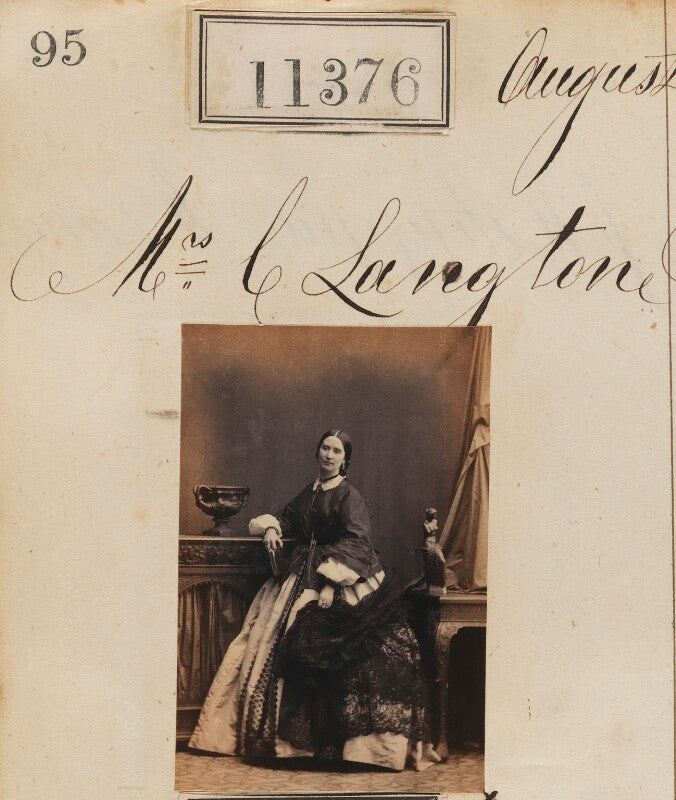 95
11376
August
Mrs C Langton